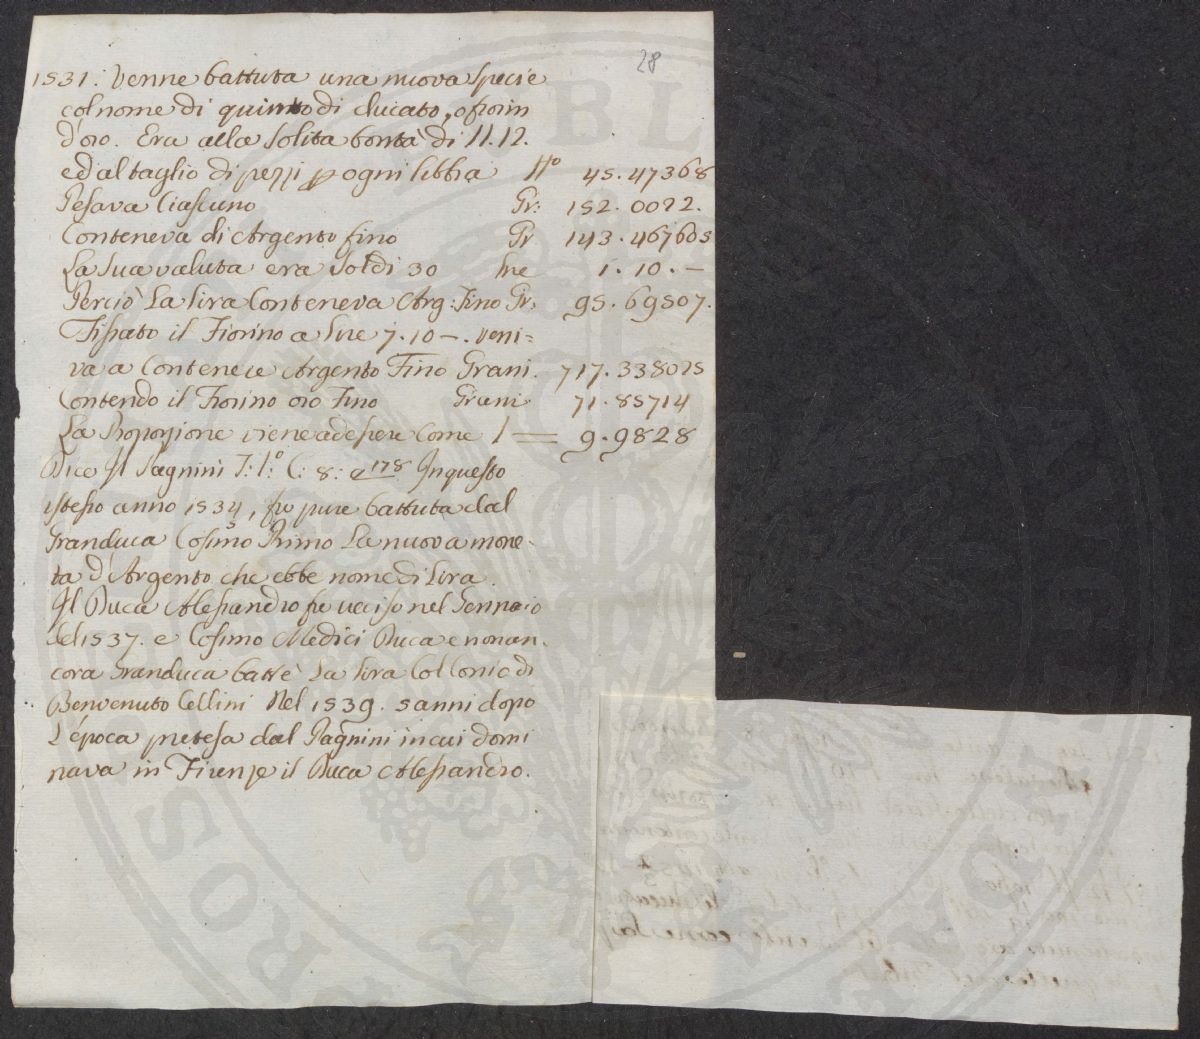 28
1531. Venne battuta una nuova Specie
col nome di quinto di ducato, o fiorin
d'oro. Era alla Solita bontà di 11.12.
ed al taglio di pezzi p ogni libbra N.o 45.47368
Pesava Ciascuno Gr: 152.0022.
Conteneva di Argento fino Gr 143.467605
La Sua valuta era Soldi 30 Lire 1.10.-
Perciò La Lira Conteneva Arg: Fino Gr: 95.69507.
Fissato il Fiorino a Lire 7.10-. veni=
va a Contenere Argento Fino Grani. 717.338025
Contendo il Fiorino oro Fino Grani 71.85714
La Proporzione viene ad essere Come 1 = 9.9828
Dice Il Pagnini T: 1.o C: 8: a 178 In questo
istesso anno 1534, fu pure battuta dal
Granduca Cosimo Primo La nuova mone-
ta d'Argento che ebbe nome di Lira.
Il Duca Alessandro fu ucciso nel Gennaio
del 1537. e Cosimo Medici Duca e non an-
cora Granduca battè La Lira Col Conio di
Benvenuto Cellini Nel 1539. 5 anni dopo
L'época pretesa dal Pagnini in cui domi
nava in Firenze il Duca Alessandro.